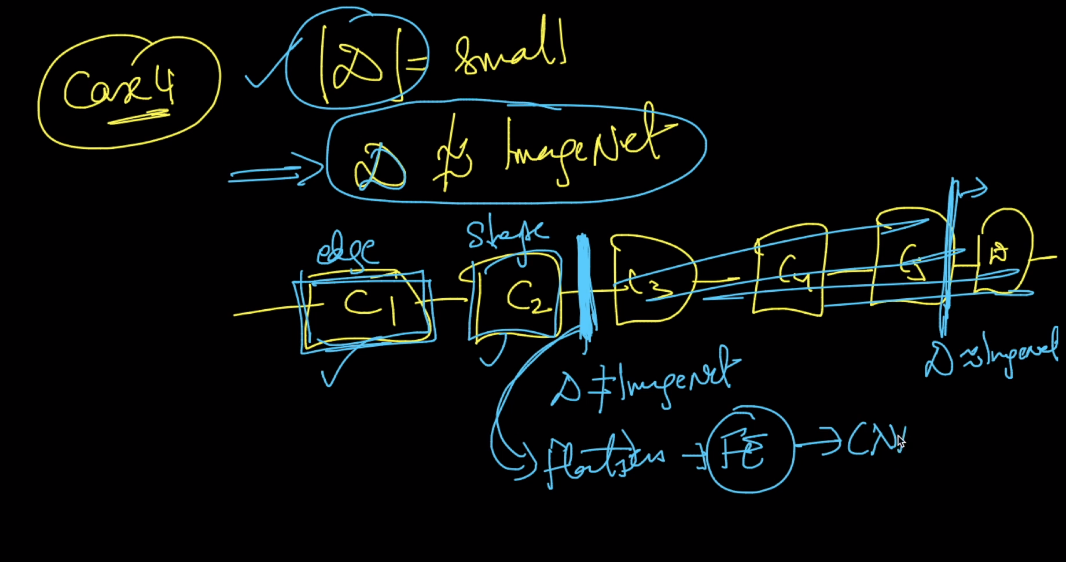 Case 4
|D| = Small
⇒ D ≉ ImageNet
edge
Shape
C1
C2
C3
C4
C5
D ≈ Imagenet
D ≠ ImageNet
→ FE → CNN